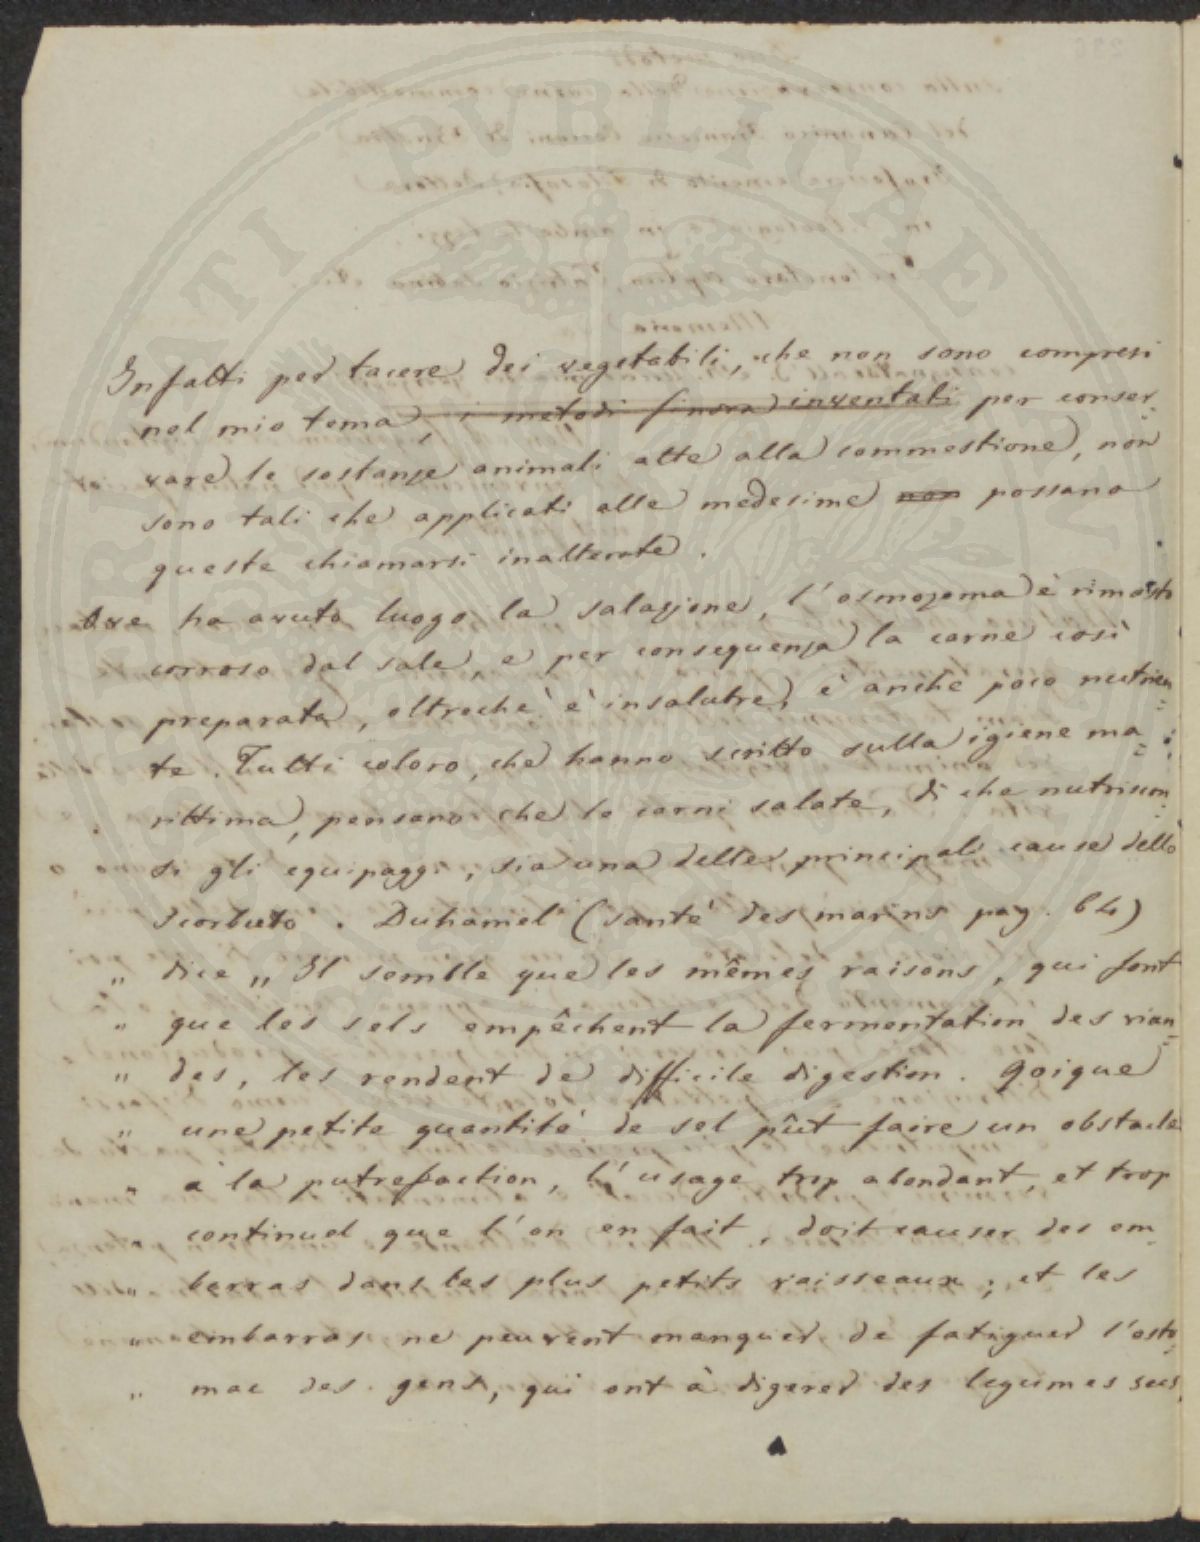 Infatti per tacere dei vegetabili, che non sono compresi
nel mio tema, i metodi finora inventati per conser-
vare le sostanze animali atte alla commestione, non
sono tali che applicati alle medesime non possano
queste chiamarsi inalterate.
Ove ha avuto luogo la salazione, l'osmozoma è rimasto
corroso dal sale, e per conseguenza la carne così
preparata, oltrechè è insalubre, è anche poco nutrien-
te. Tutti coloro, che hanno scritto sulla igiene ma-
rittima, pensano che le carni salate, di che nutrison-
si gli equipaggi, sia una delle principali cause dello
Scorbuto. Duhamel (santé des marins pag. 64)
„ dice „ Il semble que les mêmes raisons, qui font
„ que les sels empêchent la fermentation des vian-
„ des, les rendent de difficile digestion. Qoique
„ une petite quantité de sel pût faire un obstacle
„ a la putrefaction, l'usage trop abondant, et trop
„ continuel que l'on en fait, doit causer des em-
„ barras dans les plus petits vaisseaux; et les
„ embarras ne peuvent manquer de fatiguer l'esto-
„ mac des gens, qui ont à digerer des legumes secs,
PVBLICAE